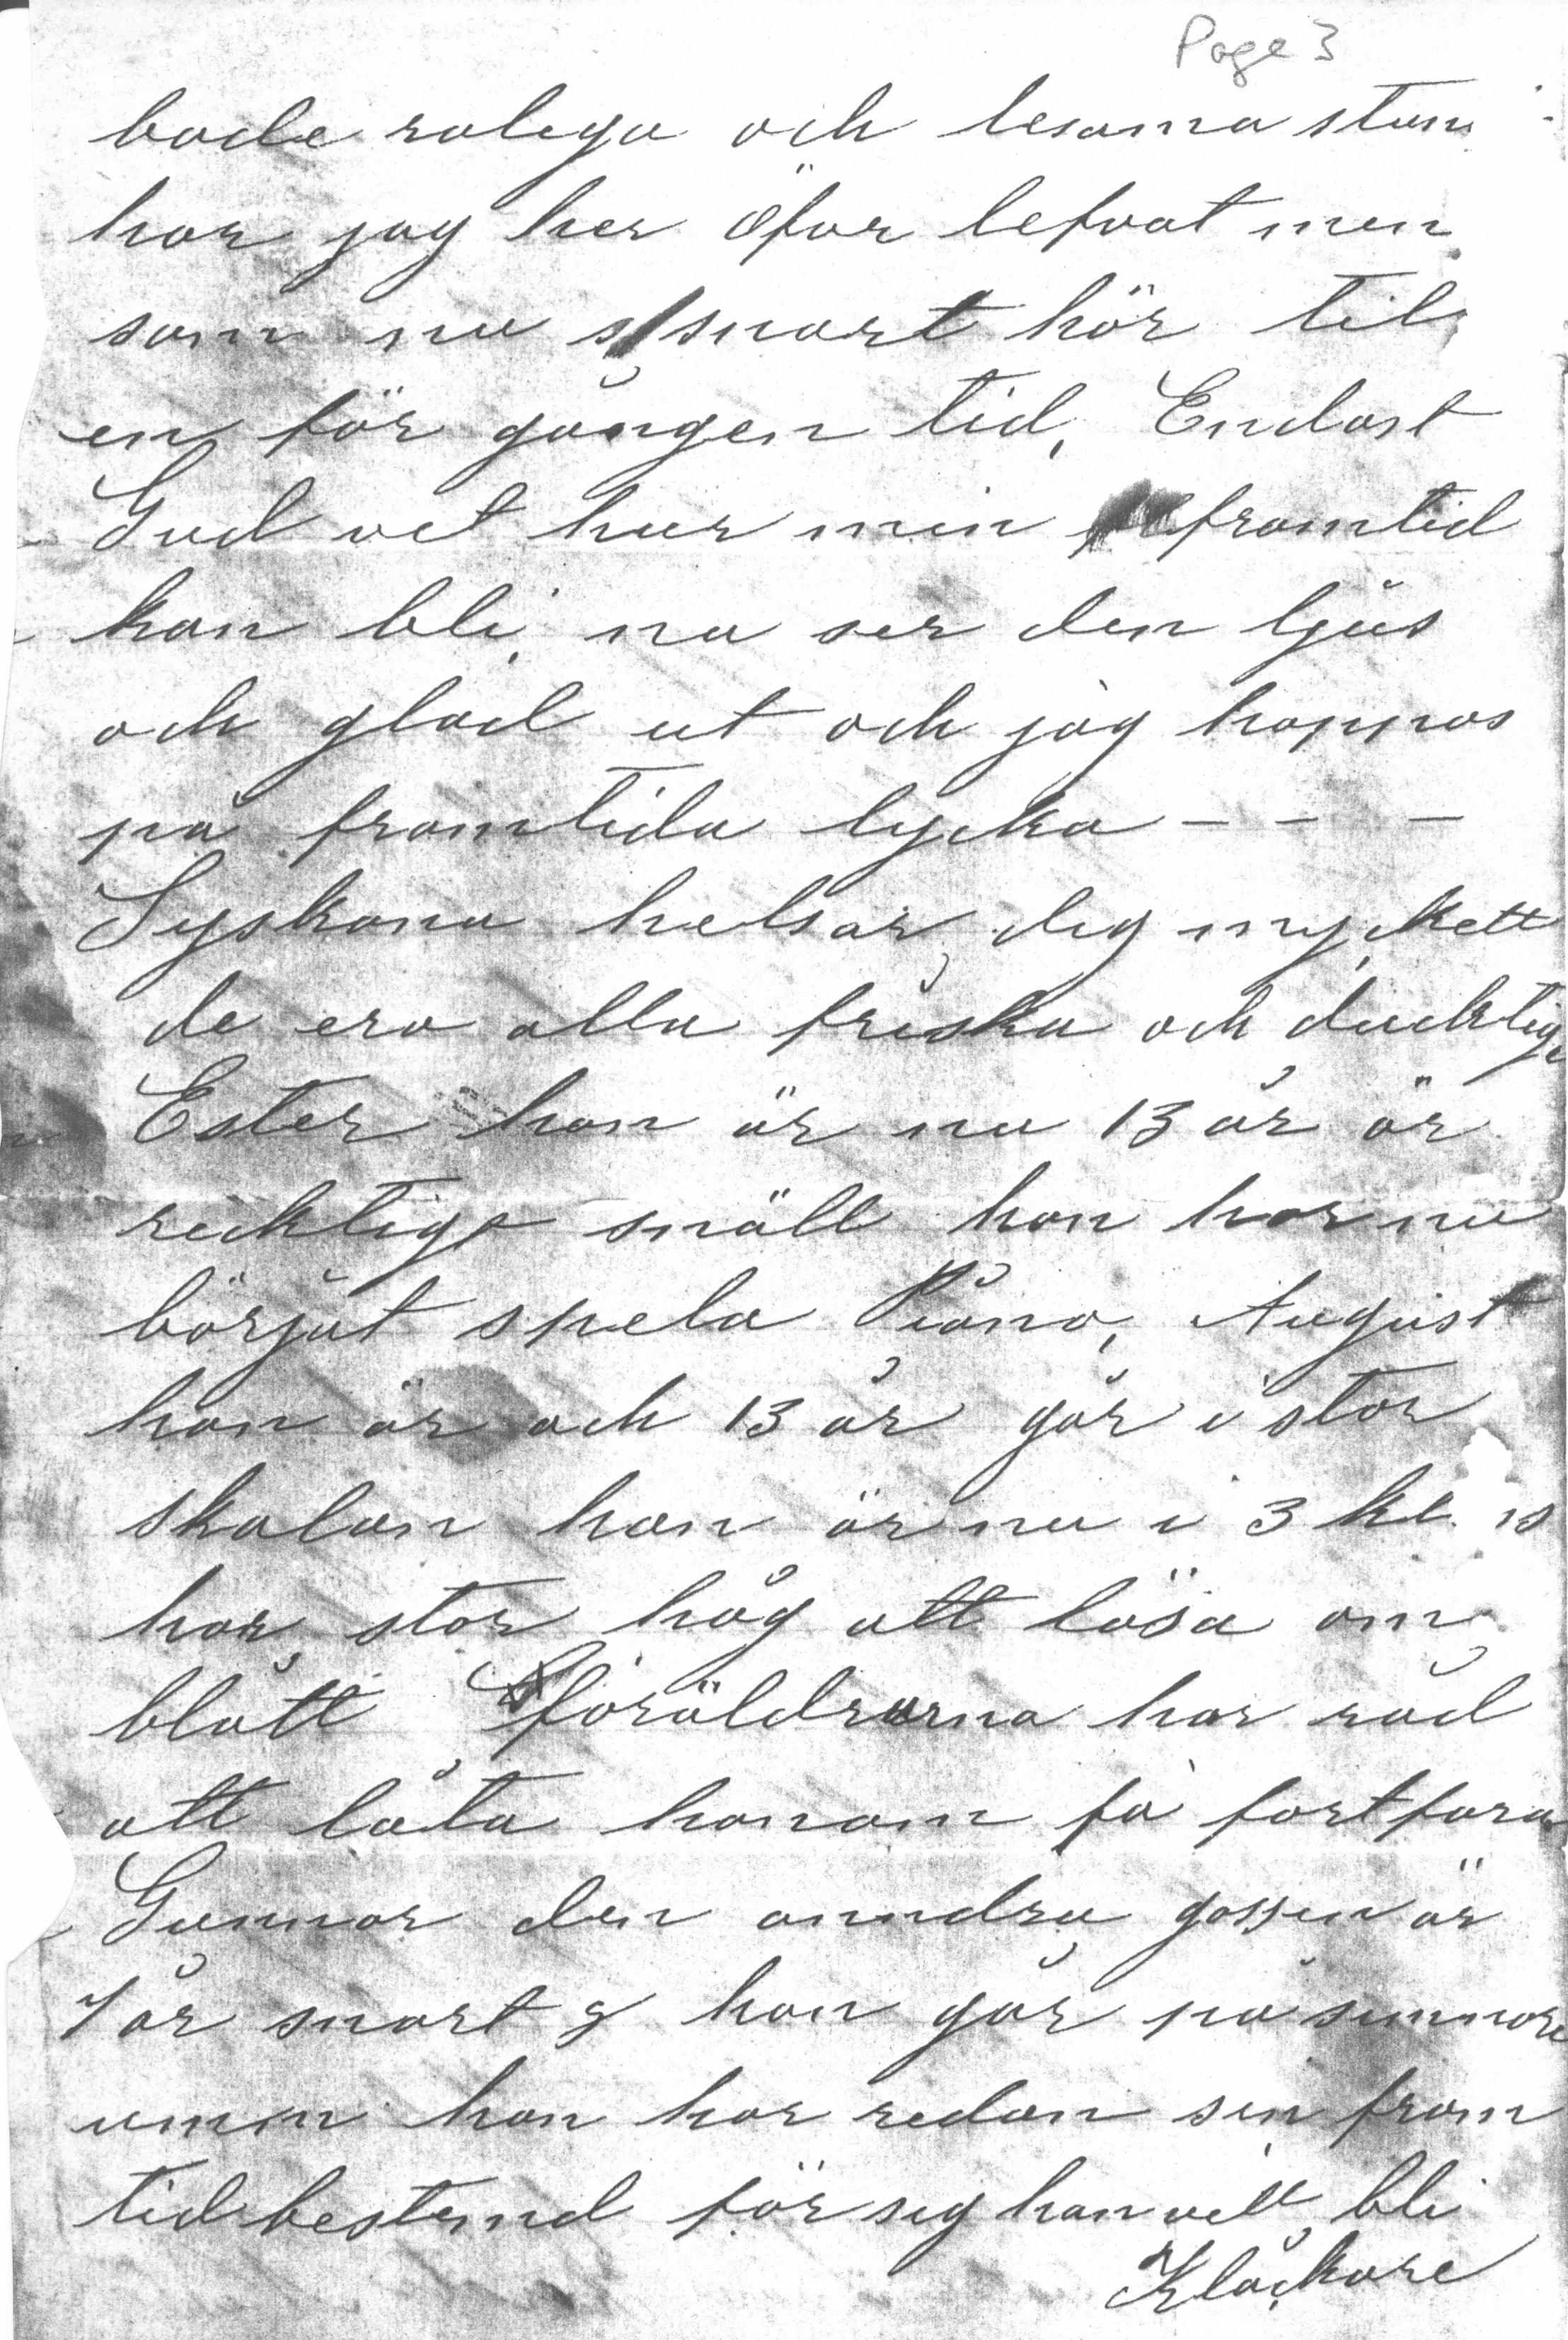 Page 3
bode roliga och lesama stun
har jag her öfver lefvat men
som nu snart hör til
en för gången tid, Endast
Gud vet hur min framtid
kan bli, nu ser den ljus
och glad ut och jag hoppas
på framtida lycka - - -
Syskona helsar dig myckett
de era alla friska och ducktiga
Ester hon är nu 13 år är
recktigt snäll hon har nu
börjat spela Piano, August
han är och 13 år går i stor
skolan han är nu i 3 kl.
har stor håg att läsa om
blått föräldrarna har råd
att låta honom få fortfara
Gunnar den anndra gossen är
7 år snart 8 han går på
han har redan sin fram
tid bestemd för sig han vill bli
Klåckare